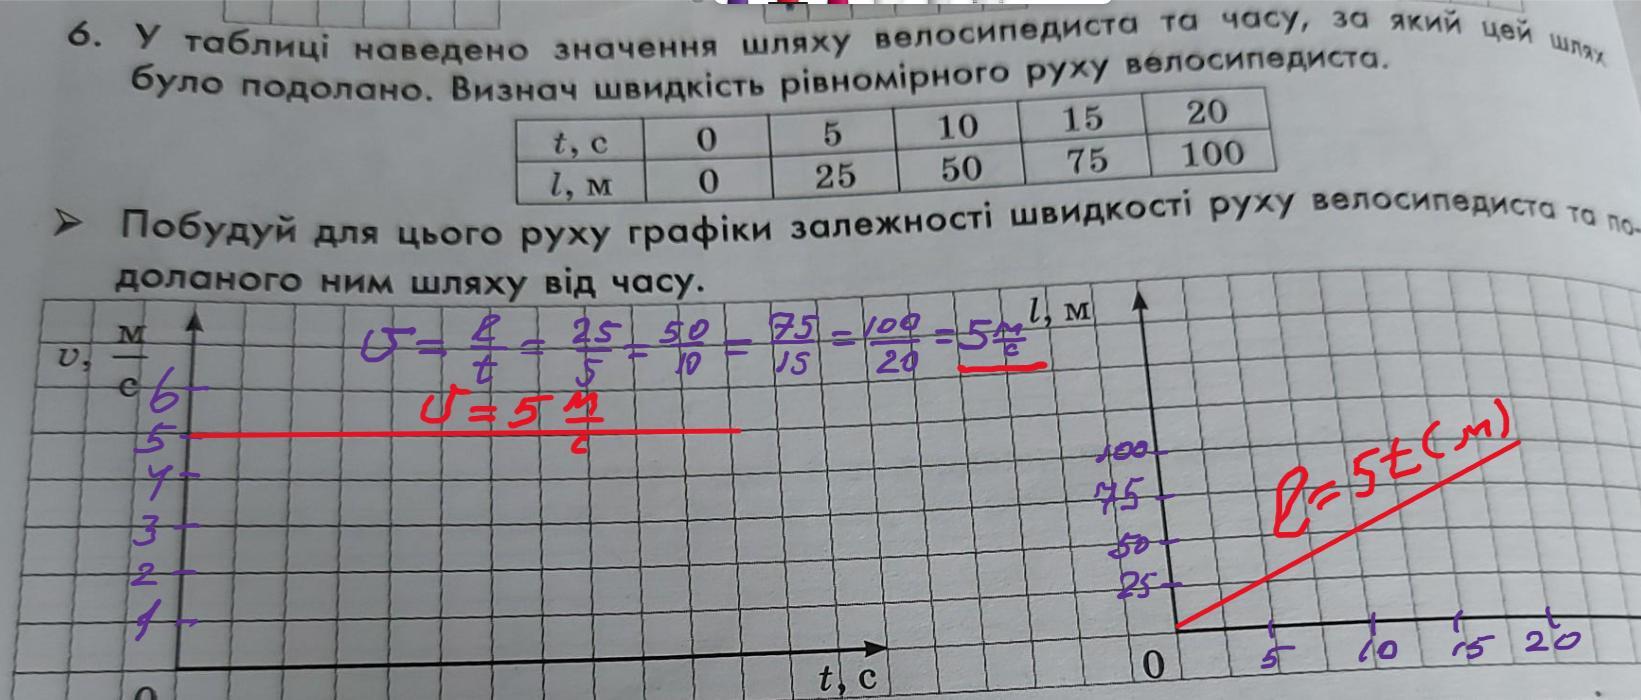 6. У таблиці наведено значення шляху велосипедиста та часу, за який цей шлях
було подолано. Визнач швидкість рівномірного руху велосипедиста.
t, с 0 5 10 15 20
l, м 0 25 50 75 100
➤ Побудуй для цього руху графіки залежності швидкості руху велосипедиста та по-
доланого ним шляху від часу.
v, м/с
υ = l/t = 25/5 = 50/10 = 75/15 = 100/20 = 5 м/с
υ = 5 м/с
6
5
4
3
2
1
0
t, с
l, м
100
75
50
25
0
5 10 15 20
l = 5t (м)